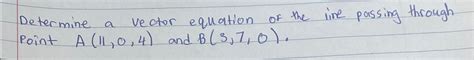 Determine a vector equation of the line passing through
Point A(11,0,4) and B(3,7,0).